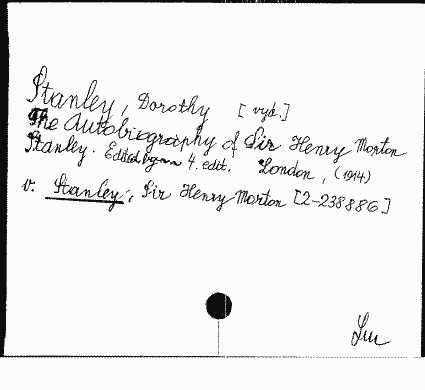 Stanley, Dorothy [vyd.]
The Autobiography of Sir Henry Morton
Stanley. Edited by 4. edit. London, (1914)
v. Stanley, Sir Henry Morton [2-238886]